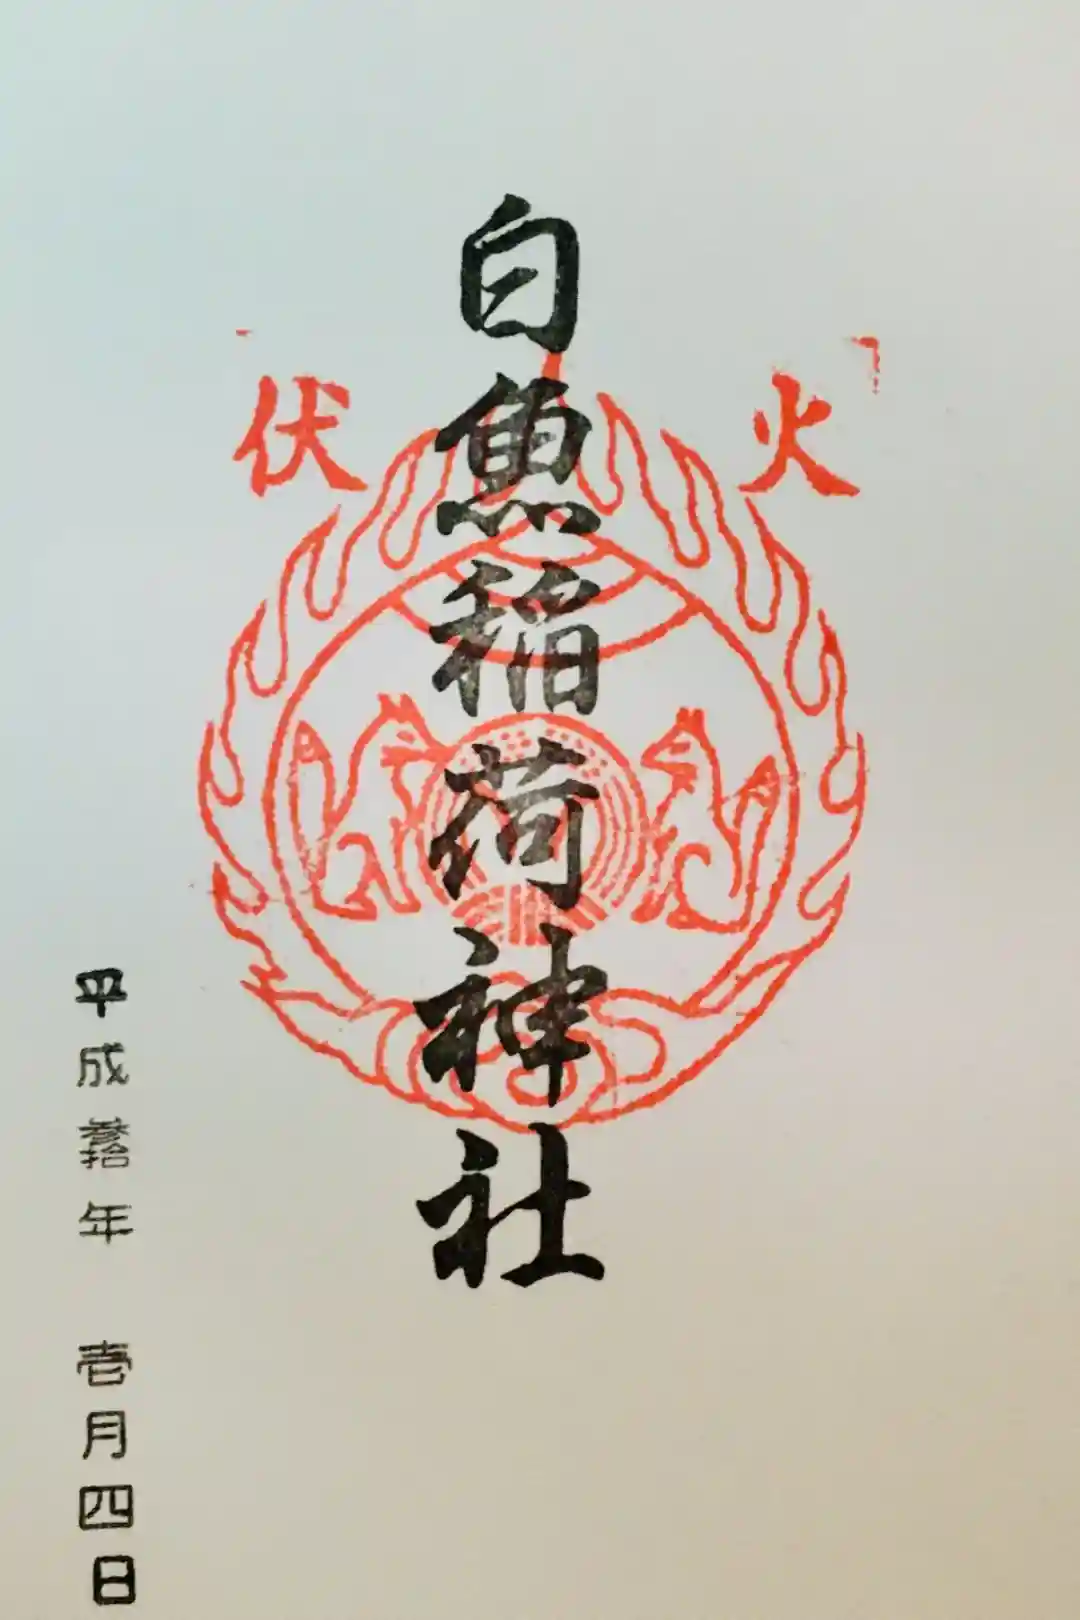 火伏
白魚稲荷神社
平成参拾年 壱月四日